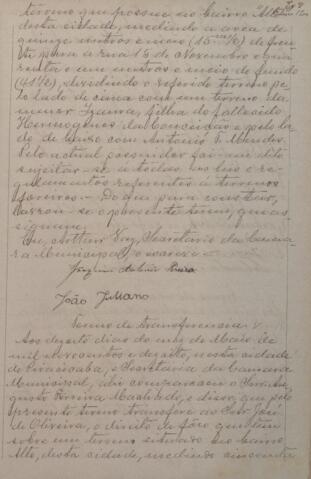 terreno que possue no bairro Alto
desta cidade, medindo a area de
quinze metros e meio (15 m/2) de fren
te para a rua 15 de Novembro e qua
renta e um metros e meio de fundo
(41 ½), dividindo o referido terreno pe
lo lado de cima com um terreno da
menor filha do fallecido
Hermogenes da Conceição e pelo la
do de baixo com Antonio F. Mendes.
Pelo actual possuidor foi-me dito
sujeitar-se a todas as leis e re
gulamentos referentes a terrenos
foreiros. — Do que para constar,
lavrou-se o presente termo, que as
signam.
Eu, Arthur Vaz, Secretario da Cama
ra Municipal, o escrevi
Joaquim Antonio
João Juliano
Termo de transferencia
Aos dezoito dias do mez de Maio de
mil novecentos e dezoito, nesta cidade
de Piracicaba, e Secretaria da Camara
Municipal, ahi compareceu o Snr. Au
gusto Ferreira Machado, e disse que pelo
presente termo transfere ao Snr. José
de Oliveira, o direito de fôro que tem
sobre um terreno situado no bairro
Alto, desta cidade, medindo cincoenta